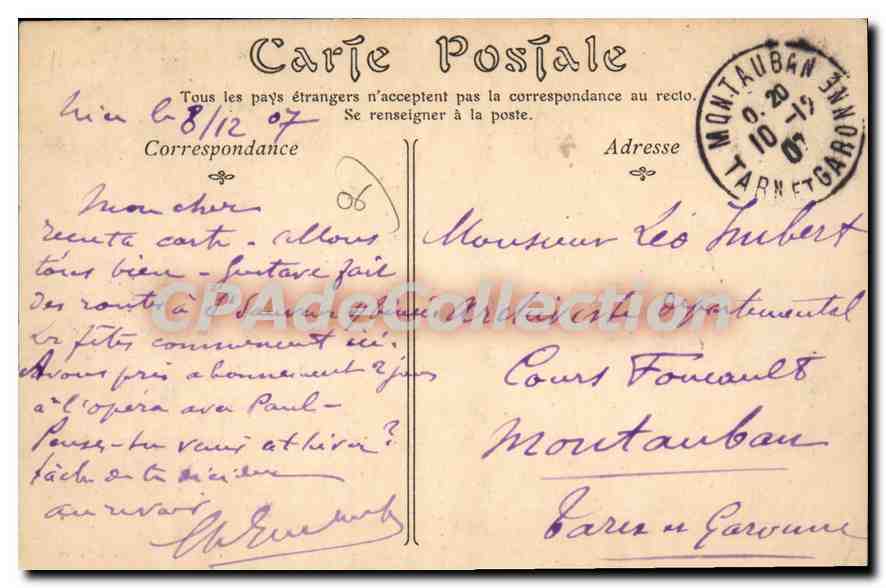 Carte Postale
Tous les pays étrangers n'acceptent pas la correspondance au recto.
Se renseigner à la poste.
Nice le 8/12 07
Correspondance
06
Mon cher
reçu ta carte - Allons
tous bien - Gustave fait
des routes à St Sauveur
Les fêtes commencent ici.
Avons pris abonnement 2 jours
à l'opéra avec Paul -
Penses-tu venir cet hiver?
tâche de te décider
au revoir
Adresse
Monsieur Léo Imbert
Archiviste départemental
Cours Foucault
Montauban
Tarn et Garonne
MONTAUBAN
TARN ET GARONNE
20
10 -12
07
CPAdeCollection